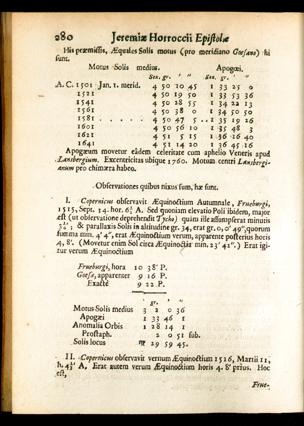 280 Jeremiæ Horroccii Epistolæ
His præmissis, Æquales Solis motus (pro meridiano Goesano) hi
sunt.
Motus Solis medius. Apogæi.
Sex. gr. ′ ″ Sex. gr. ′ ″
A. C. 1501 Jan. 1. merid. 4 50 10 45 1 33 25 0
1521 4 50 19 50 1 33 53 36
1541 4 50 28 55 1 34 22 13
1561 4 50 38 0 1 34 50 50
1581 4 50 47 5 1 35 19 26
1601 4 50 56 10 1 35 48 3
1621 4 51 5 15 1 36 16 40
1641 4 51 14 20 1 36 45 16
Apogæum movetur eâdem celeritate cum aphelio Veneris apud
Lansbergium. Excentricitas ubique 1760. Motum centri Lansbergi-
anum pro chimæra habeo.
Observationes quibus nixus sum, hæ sunt.
I. Copernicus observavit Æquinoctium Autumnale, Frueburgi,
1515, Sept. 14. hor. 6½ A. Sed quoniam elevatio Poli ibidem, major
est (ut observatione deprehendit Tycho) quam ille assumpserat minutis
& parallaxis Solis in altitudine gr. 34, erat gr. 0, 0′ 49″, quorum
summa min. 4′ 4″, erat Æquinoctium verum, apparente posterius horis
4, 8′. (Movetur enim Sol circa Æquinoctia min. 23′ 41″.) Erat igi-
tur verum Æquinoctium
Frueburgi, hora 10 38′ P.
Goesæ, apparenter 9 16 P.
Exactè 9 22 P.
gr. ′ ″
Motus Solis medius 3 2 0 36
Apogæi 1 33 46 1
Anomalia Orbis 1 28 14 1
Prostaph. 2 0 51 sub.
Solis locus ♍ 29 59 45.
II. Copernicus observavit vernum Æquinoctium 1516, Martii 11,
h. 4⅓ A, Erat autem verum Æquinoctium horis 4. 8′ prius. Hoc
est,
Frue-